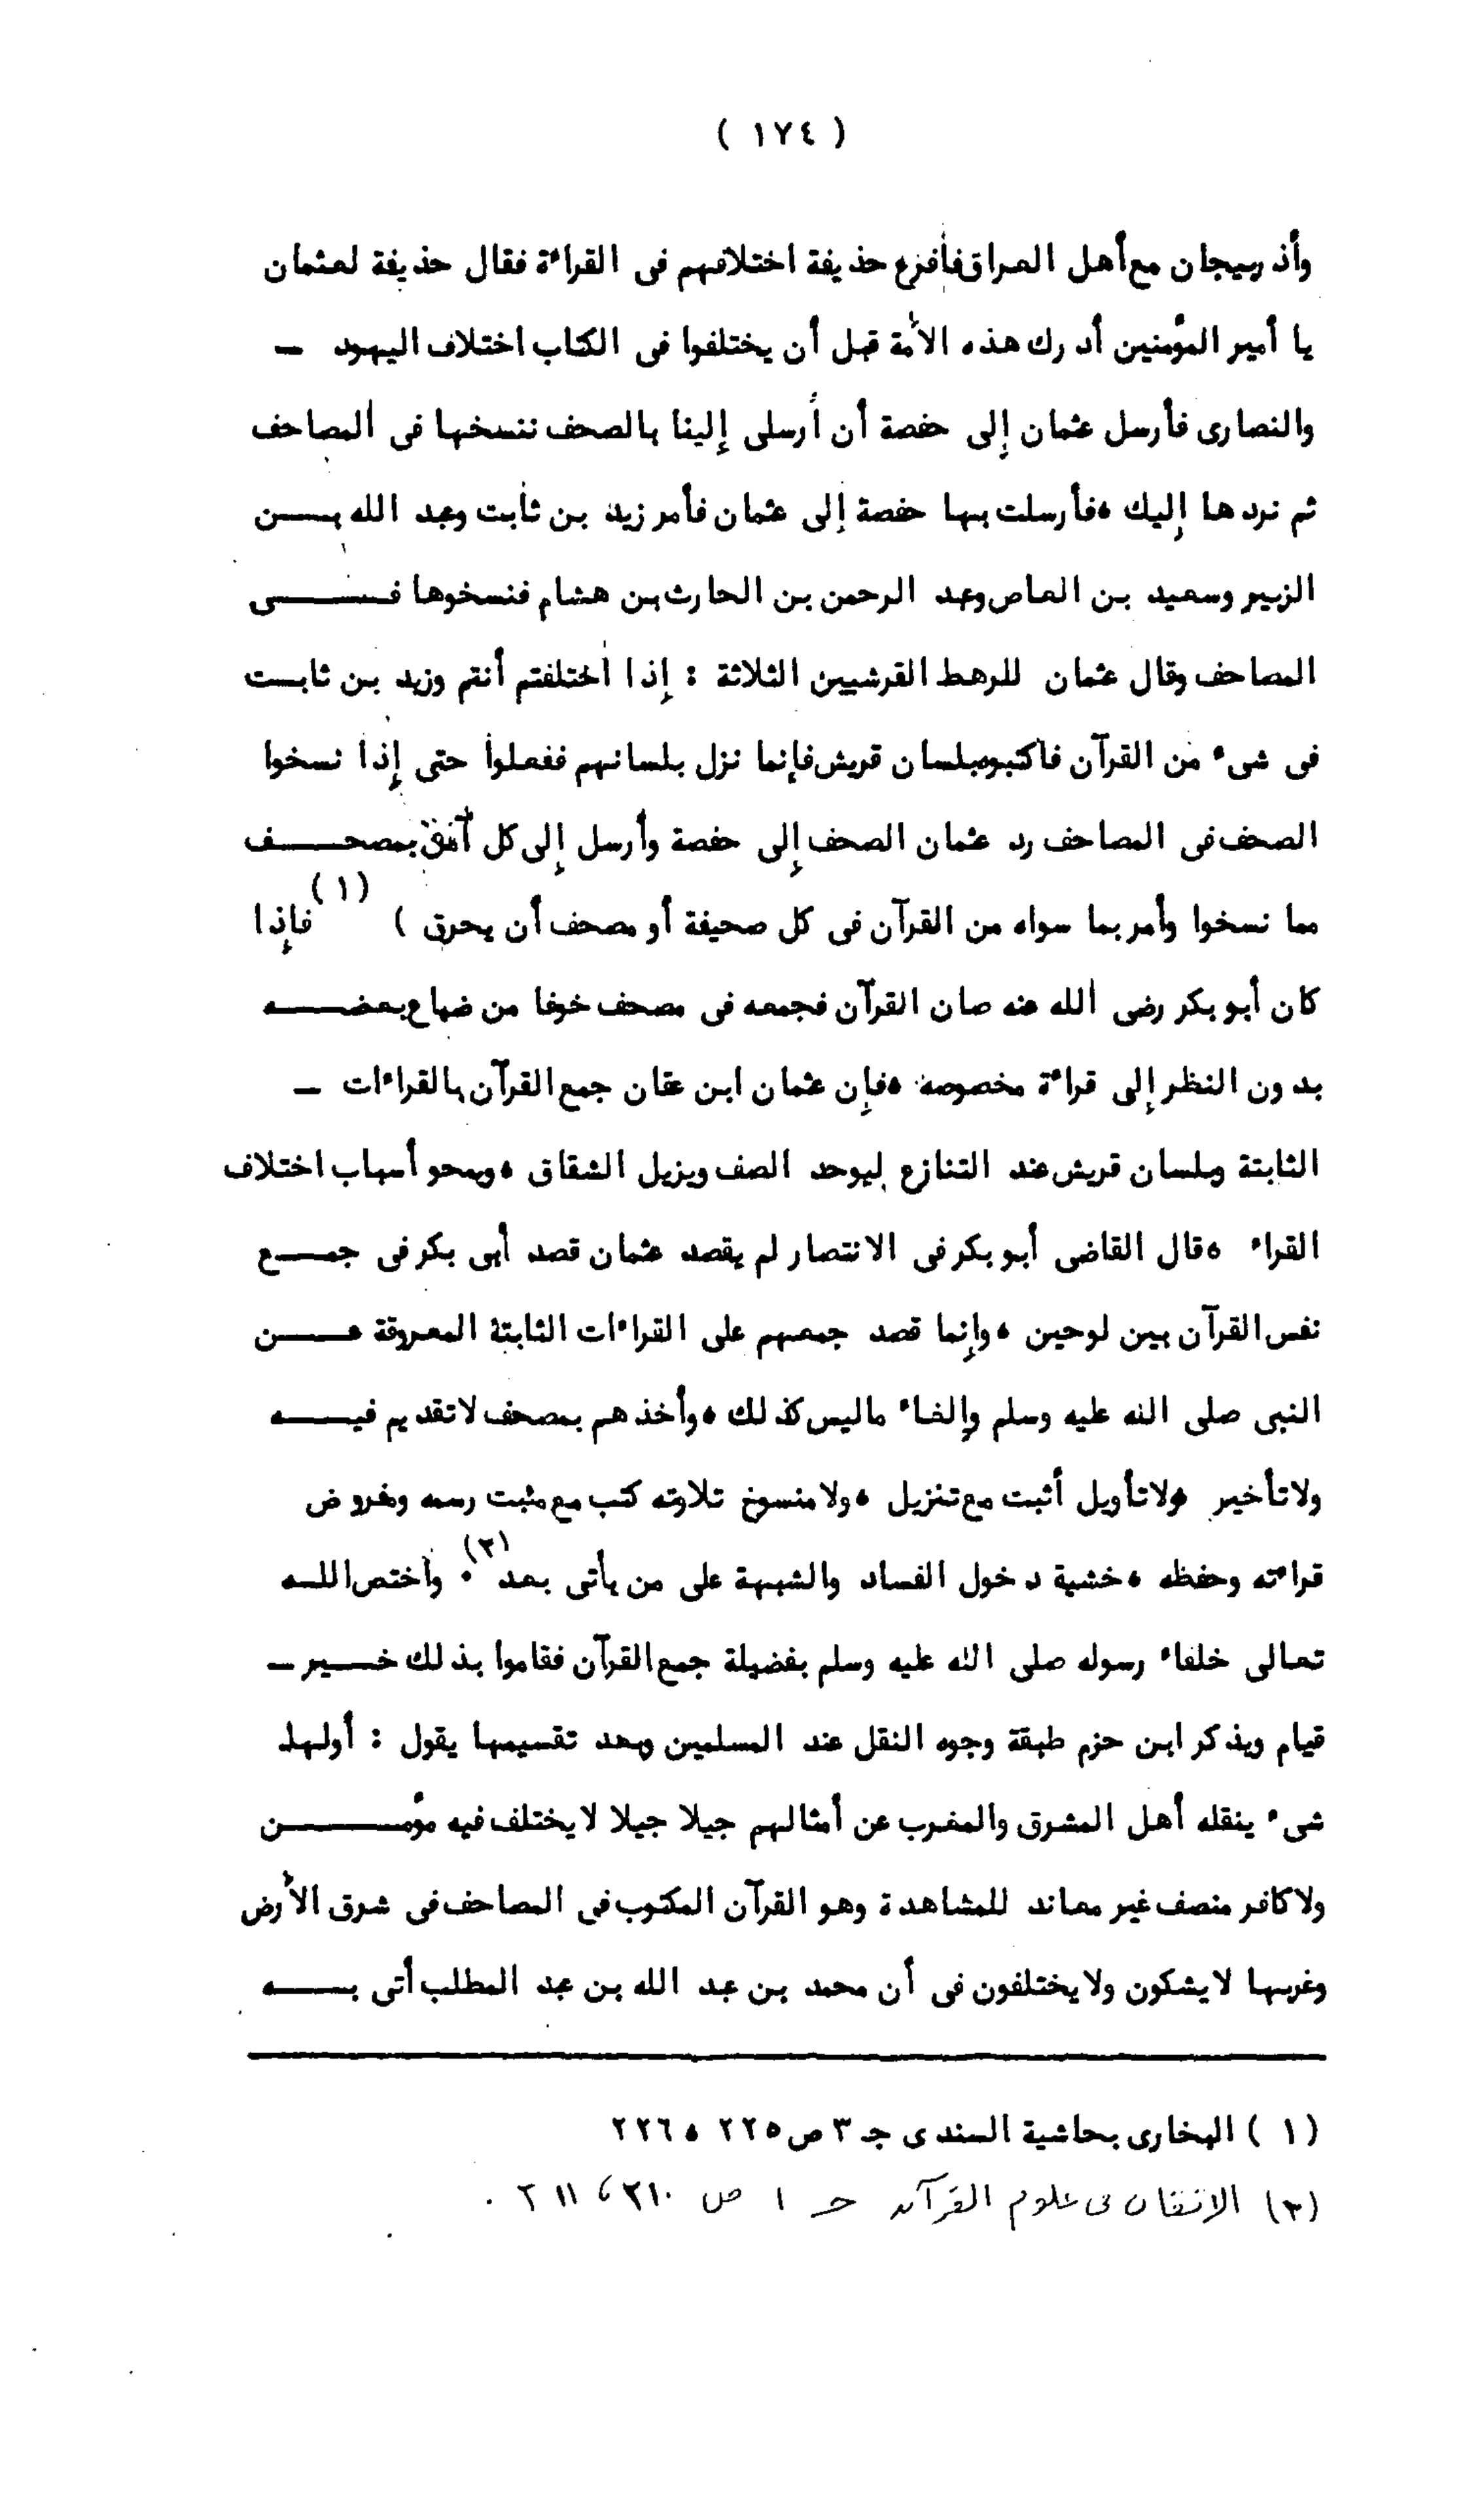 ( ١٧٤ )
وأذربيجان مع أهل العراق فأفزع حذيفة اختلافهم فى القراءة فقال حذيفة لعثمان
يا أمير المؤمنين أدرك هذه الأمة قبل أن يختلفوا فى الكتاب اختلاف اليهود ــ
والنصارى فأرسل عثمان إلى حفصة أن أرسلى إلينا بالصحف ننسخها فى المصاحف
ثم نردها إليك ، فأرسلت بها حفصة إلى عثمان فأمر زيد بن ثابت وعبد الله بـــن
الزبير وسعيد بن العاص وعبد الرحمن بن الحارث بن هشام فنسخوها فـــــى
المصاحف وقال عثمان للرهط القرشيين الثلاثة : إذا اختلفتم أنتم وزيد بن ثابـت
فى شىء من القرآن فاكتبوه بلسان قريش فإنما نزل بلسانهم ففعلوا حتى إذا نسخوا
الصحف فى المصاحف رد عثمان الصحف إلى حفصة وأرسل إلى كل أفق بمصحـــف
مما نسخوا وأمر بما سواه من القرآن فى كل صحيفة أو مصحف أن يحرق ) (١) فإذا
كان أبو بكر رضى الله عنه صان القرآن فجمعه فى مصحف خوفا من ضياع بعضـــه
بدون النظر إلى قراءة مخصوصة ، فإن عثمان ابن عفان جمع القرآن بالقراءات ــ
الثابتة وبلسان قريش عند التنازع ليوحد الصف ويزيل الشقاق ، ويمحو أسباب اختلاف
القراء ، قال القاضى أبو بكر فى الانتصار لم يقصد عثمان قصد أبى بكر فى جمـــع
نفس القرآن بين لوحين ، وإنما قصد جمعهم على القراءات الثابتة المعروفة عـــن
النبى صلى الله عليه وسلم وإلغاء ماليس كذلك ، وأخذهم بمصحف لاتقديم فيـــه
ولا تأخير ولا تأويل أثبت مع تنزيل ، ولا منسوخ تلاوته كتب مع مثبت رسمه ومفروض
قراءته وحفظه ، خشية دخول الفساد والشبهة على من يأتى بعد (٢) . واختص اللـه
تعالى خلفاء رسوله صلى الله عليه وسلم بفضيلة جمع القرآن فقاموا بذلك خــير ــ
قيام ويذكر ابن حزم طبقة وجوه النقل عند المسلمين وبعد تقسيمها يقول : أولها
شىء ينقله أهل المشرق والمغرب عن أمثالهم جيلا جيلا لا يختلف فيه مؤمـــــن
ولا كافر منصف غير معاند للمشاهدة وهو القرآن المكتوب فى المصاحف فى شرق الأرض
وغربها لا يشكون ولا يختلفون فى أن محمد بن عبد الله بن عبد المطلب أتى بـــه
(١ ) البخارى بحاشية السندى جـ ٣ ص ٢٢٥ ، ٢٢٦
(٢) الاتقان فى علوم القرآن حـ ١ ص ٢١٠ ، ٢١١ .